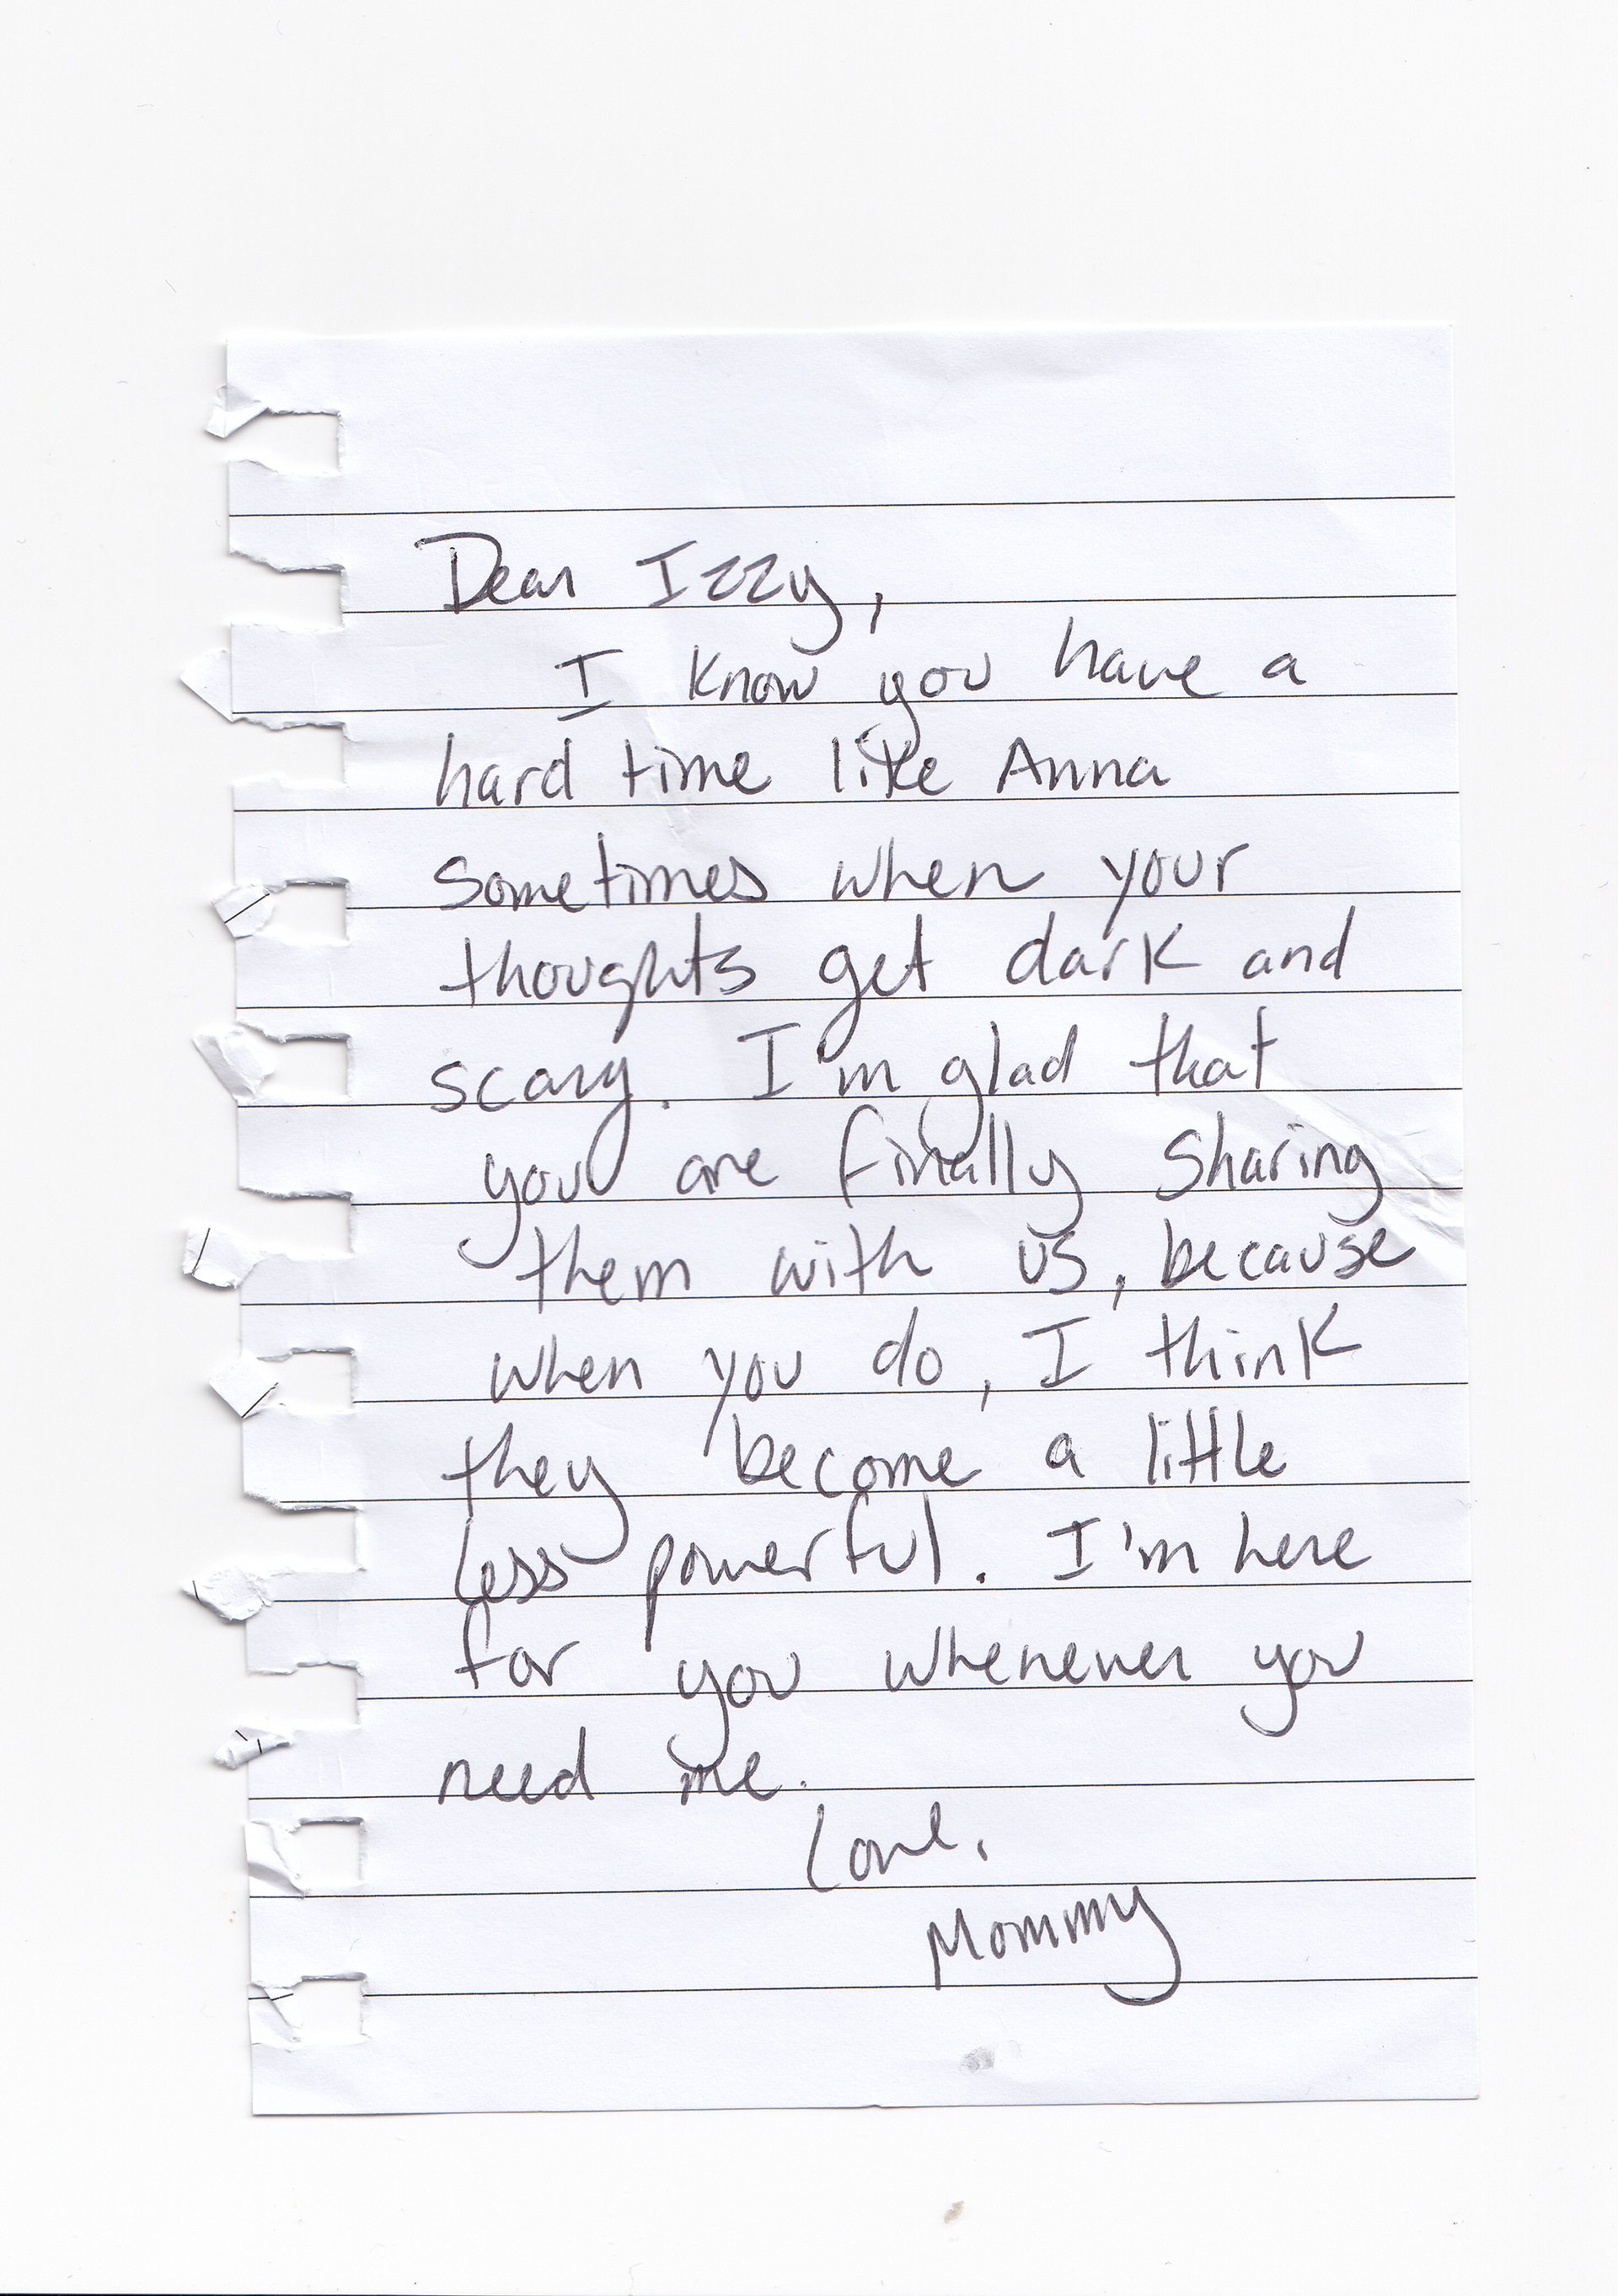 Dear Izzy,
I know you have a
hard time like Anna
sometimes when your
thoughts get dark and
scary. I'm glad that
you are finally sharing
them with us, because
when you do, I think
they become a little
less powerful. I'm here
for you whenever you
need me.
Love,
Mommy